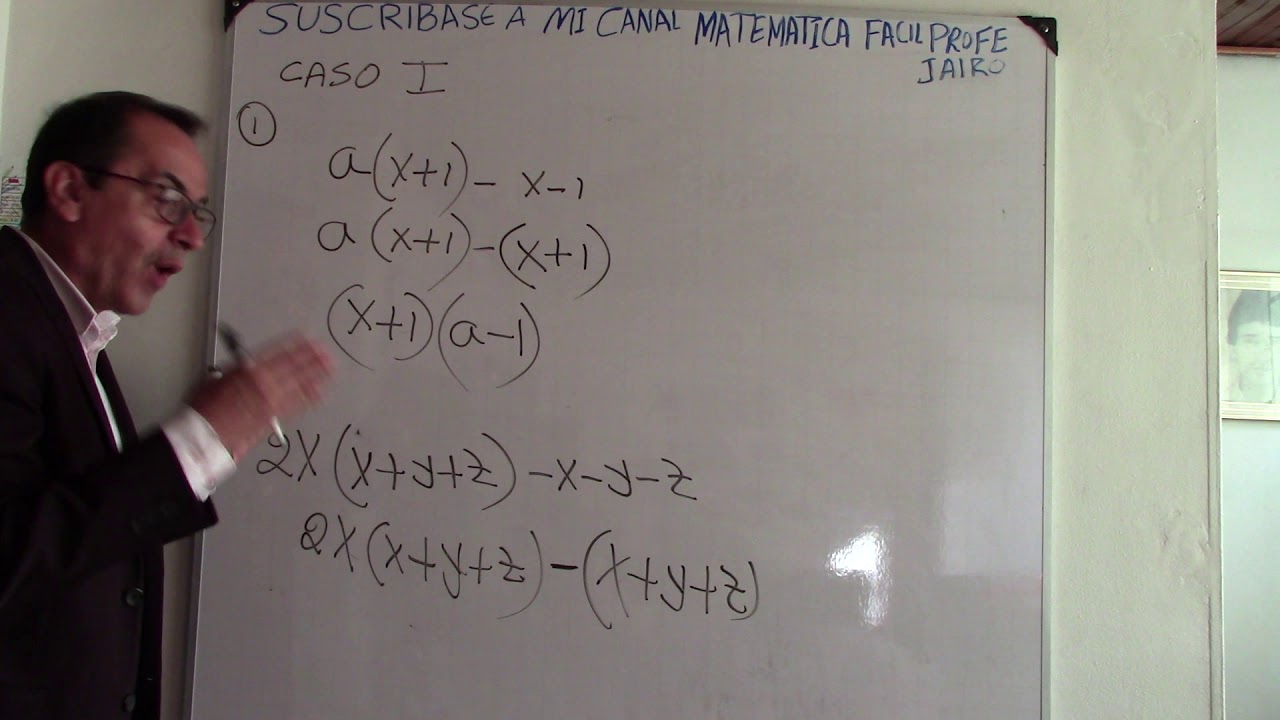 SUSCRIBASE A MI CANAL MATEMATICA FACIL PROFE
JAIRO
CASO I
①
a(x+1)- x-1
a(x+1)-(x+1)
(x+1)(a-1)
2X(x+y+z)-x-y-z
2X(x+y+z)-(x+y+z)